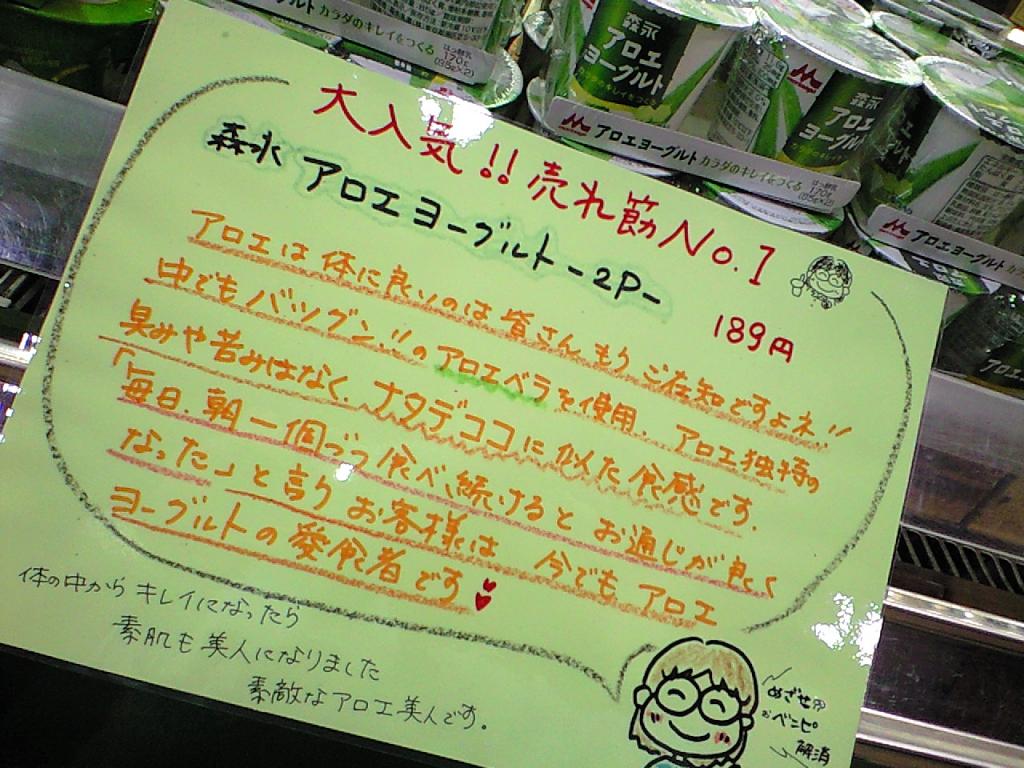 アロエヨーグルト カラダのキレイをつくる
170g
(85g×2)
森永
アロエ
ヨーグルト
アロエヨーグルト カラダのキレイをつくる
170g
(85g×2)
森永
アロエ
ヨーグルト
アロエヨーグルト カラダのキレイをつくる
大人気!!売れ筋No.1
森永 アロエヨーグルト-2P-
189円
アロエは体に良いのは皆さんもうご存知ですよネ!!
中でもバツグン!!のアロエベラを使用、アロエ独特の
臭みや苦みはなく、ナタデココに似た食感です。
「毎日、朝一個づつ食べ続けるとお通じが良く
なった」と言うお客様は 今でもアロエ
ヨーグルトの愛食者です
体の中からキレイになったら
素肌も美人になりました
素敵なアロエ美人です。
めざせ!!
おベンピ
解消